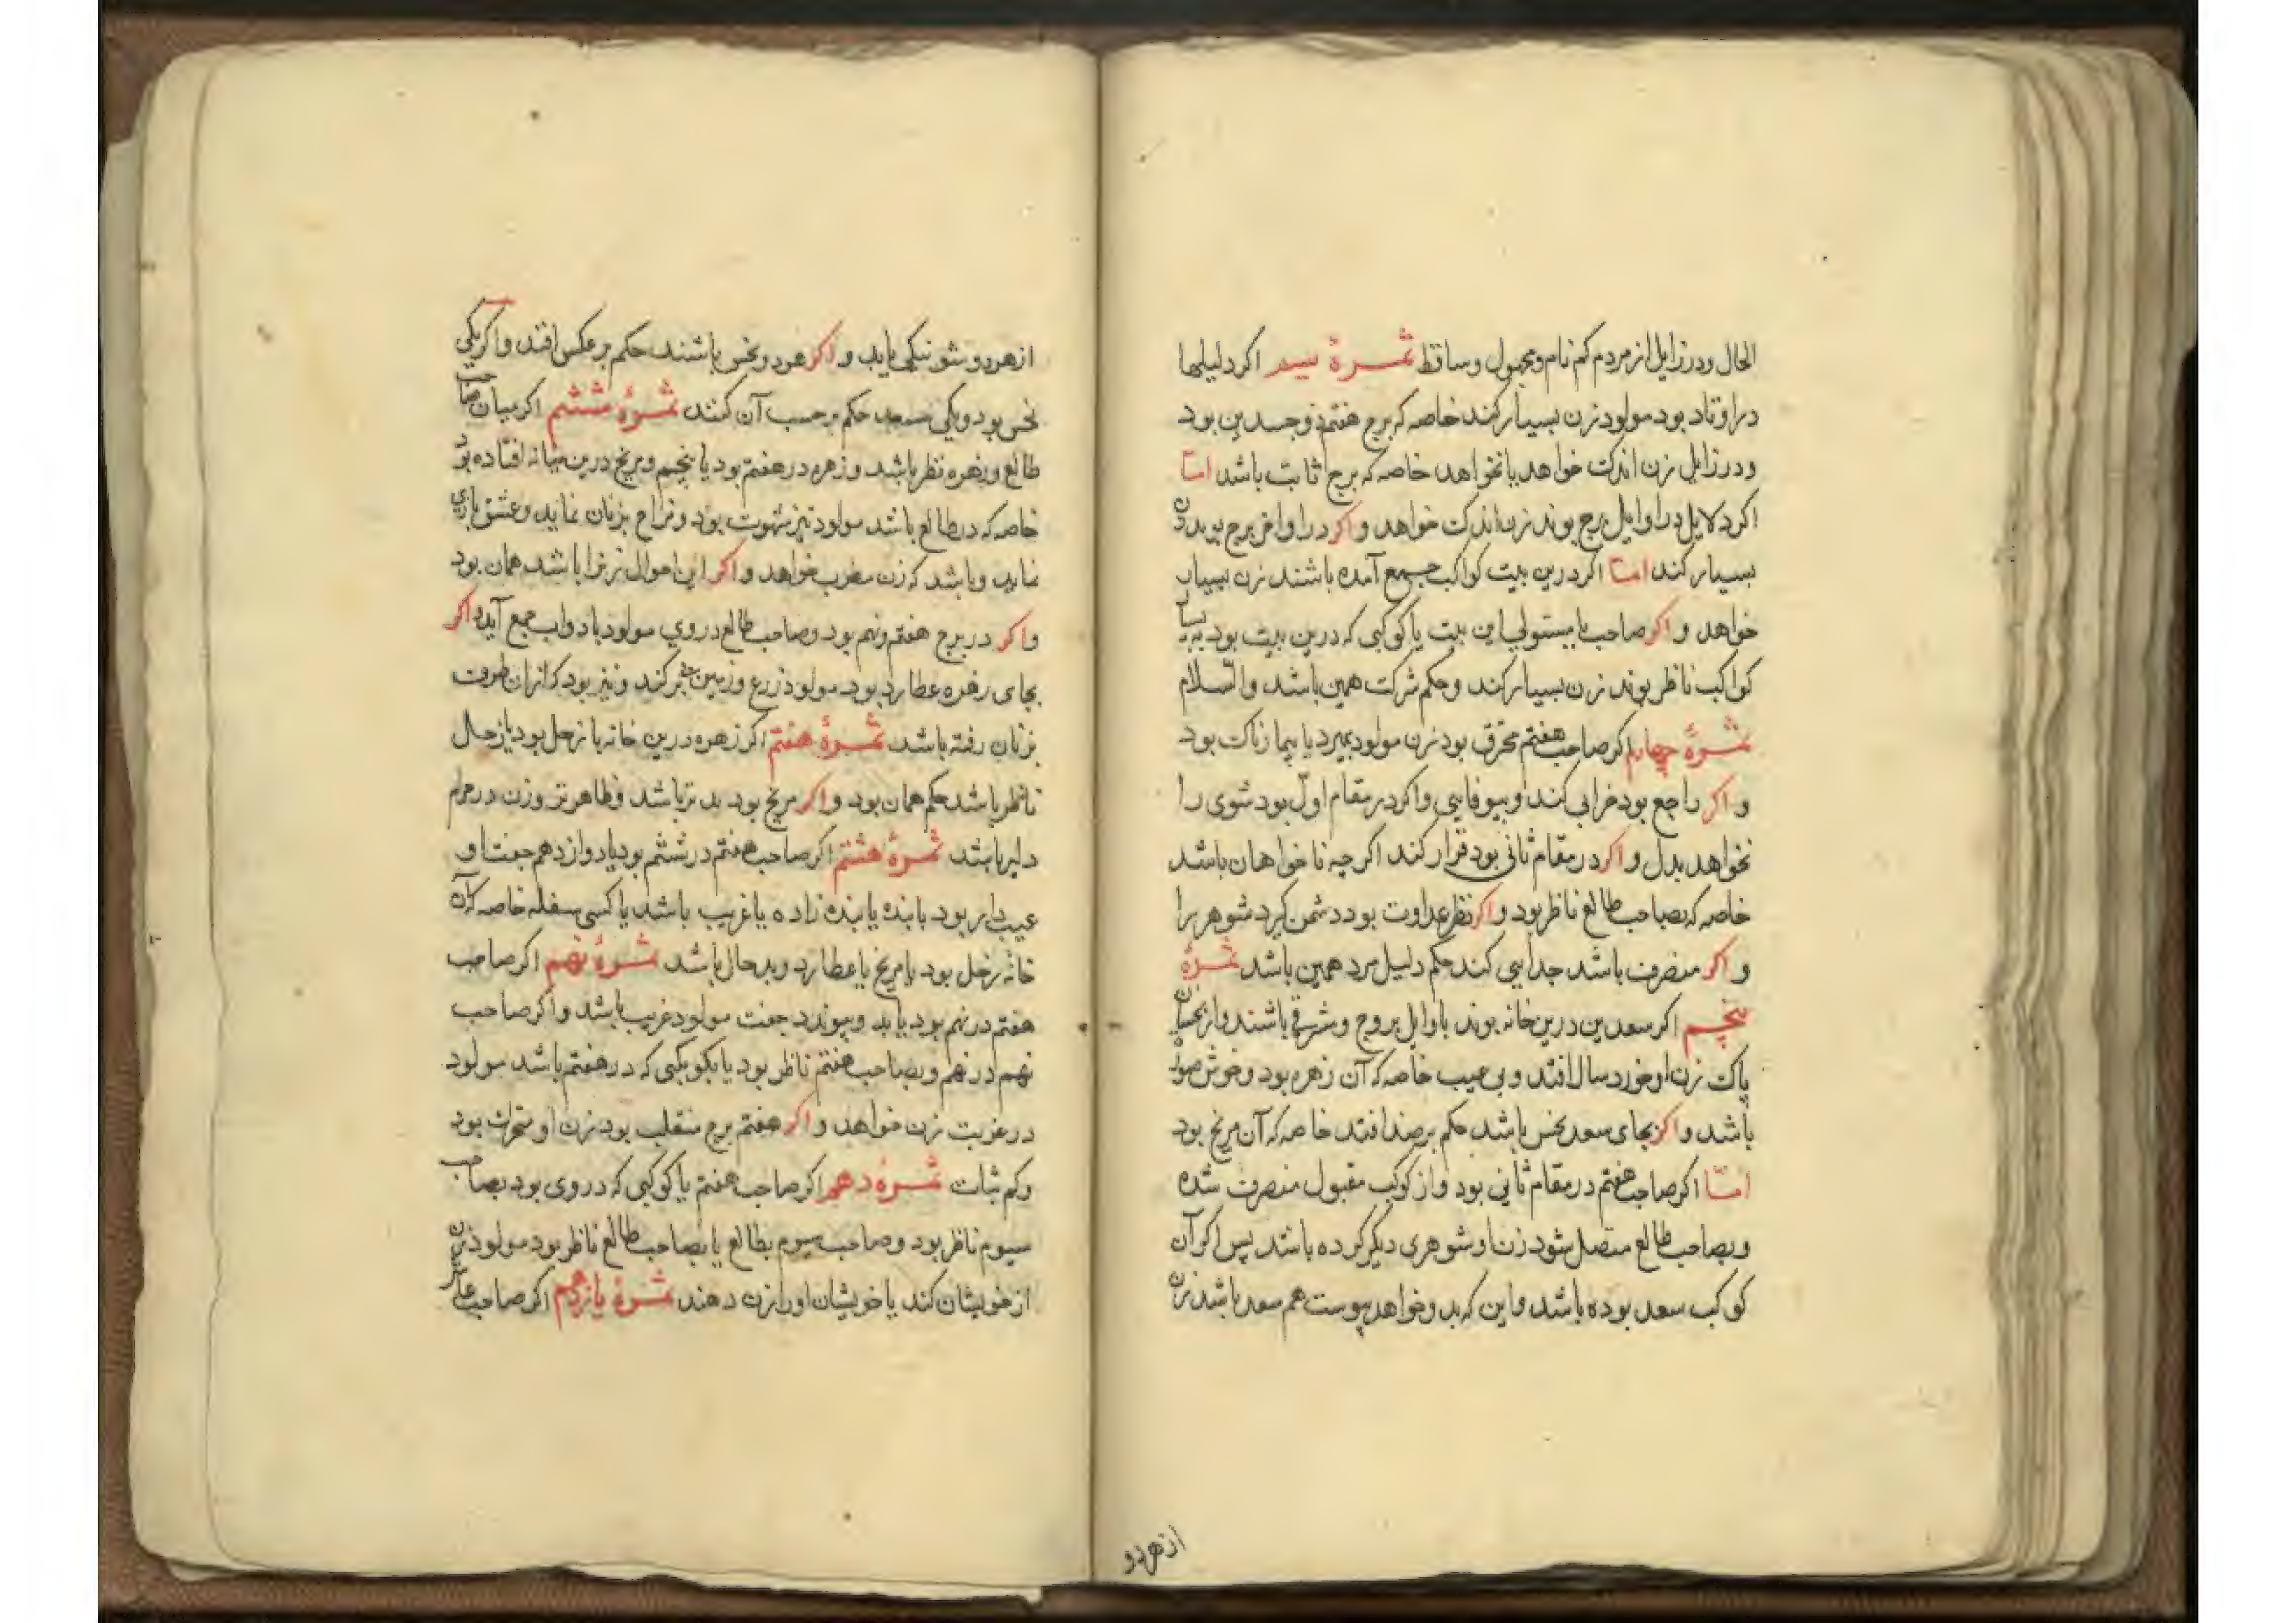 الحال ودر زایل از مردم کم نام و مجهول وساقط ثمرۀ سیم اکر دلیلها
در اوتاد بود مولود زن بسیار کند خاصه که برج هفتم ذوجسدین بود
ودر زایل زن اندک خواهد یا نخواهد خاصه که برج ثابت باشد امّا
اکر دلایل در اوایل برج بوند زن اندک خواهد و اکر در اواخر برج بوند زن
بسیار کند امّا اکر درین بیت کواکب جمع آمده باشند زن بسیار
خواهد و اکر صاحب یا مستولی این بیت یا کوکبی که درین بیت بود به بسیا
کواکب ناظر بوند زن بسیار کند وحکم شرکت همین باشد والسّلام
ثمرۀ چهارم اکر صاحب هفتم محترق بود زن مولود بمیرد یا بیمارناک بود
و اکر راجع بود خرابی کند وبیوفایی واکر در مقام اوّل بود شوی را
نخواهد بدل و اکر در مقام ثانی بود قرار کند اکر چه ناخواهان باشد
خاصه که بصاحب طالع ناظر بود و اکر نظر عداوت بود دشمن کیرد شوهر را
و اکر منصرف باشد جدایی کند حکم دلیل مرد همین باشد ثمرۀ
پنجم اکر سعدین درین خانه بوند باوایل بروج وشرقی باشند واز نحسان
پاک زن او خورد سال افتد و بی عیب خاصه که آن زهره بود وخوش صو
باشد و اکر بجای سعد نحس باشد حکم بر ضد افتد خاصه که آن مریخ بود
امّا اکر صاحب هفتم در مقام ثانی بود واز کوکب مقبول منصرف شده
وبصاحب طالع متصل شود زن او شوهری دیکر کرده باشد پس اکر آن
کوکب سعد بوده باشد واین که بدو خواهد پیوست هم سعد باشد زن
از هردو
از هردو شو نیکی یابد و اکر هردو نحس باشند حکم بر عکس افتد واکر یکی
نحس بود ویکی سعد حکم بر حسب آن کنند ثمرۀ ششم اکر میان صاحب
طالع وزهره نظر باشد وزهره در هفتم بود یا پنجم ومریخ درین میانه افتاده بود
خاصه که در طالع باشد مولود تیز شهوت بود ومزاح بزنان نماید وعشق بازی
نماید وباشد که زن مطرب خواهد و اکر این احوال زن را باشد همان بود
و اکر در برج هفتم ونهم بود وصاحب طالع در وی مولود با دواب جمع آید اکر
بجای زهره عطارد بود مولود زرع وزمین کند ونیز بود که از ان طرف
بزنان رفته باشد ثمرۀ هفتم اکر زهره درین خانه با زحل بود یا زحل
ناظر باشد حکم همان بود و اکر مریخ بود بد تر باشد وظاهر تر وزن در حرام
دلیر باشد ثمرۀ هشتم اکر صاحب هفتم در ششم بود یا دوازدهم جفت او
عیب دار بود یا بنده یا بنده زاده یا غریب باشد یا کسی سفله خاصه که آن
خانۀ زحل بود یا مریخ یا عطارد وبد حال باشد ثمرۀ نهم اکر صاحب
هفتم در نهم بود یا بدو پیوندد جفت مولود غریب باشد واکر صاحب
نهم در نهم وبصاحب هفتم ناظر بود یا بکوکبی که در هفتم باشد مولود
در غربت زن خواهد و اکر هفتم برج منقلب بود زن او متحرک بود
وکم ثبات ثمرۀ دهم اکر صاحب هفتم یا کوکبی که در وی بود بصاحب
سیوم ناظر بود وصاحب سیوم بطالع یا بصاحب طالع ناظر بود مولود زن
از خویشان کند یا خویشان او را زن دهند ثمرۀ یازدهم اکر صاحب عاشر